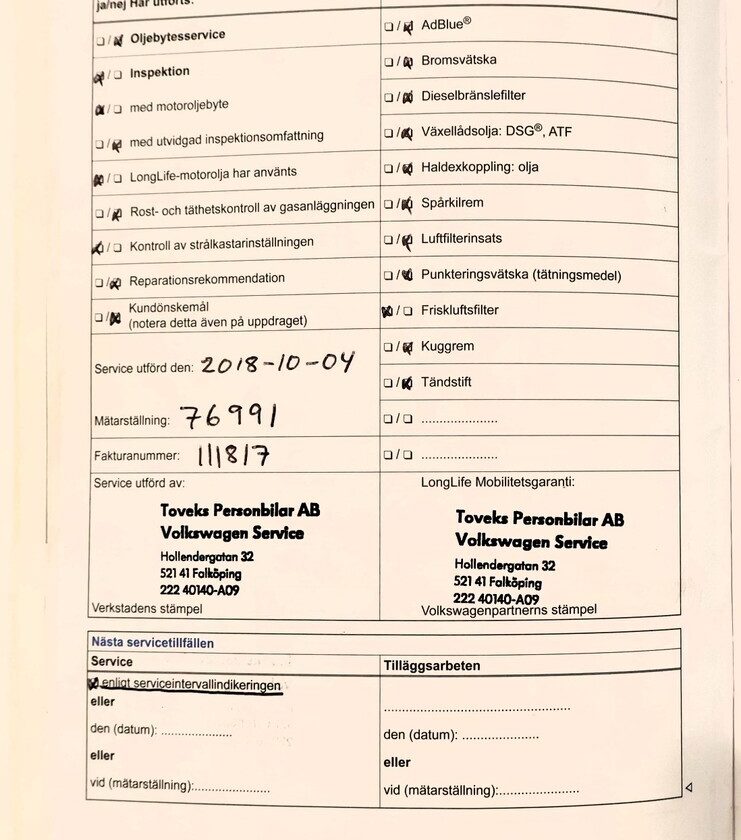 ja/nej Har utförts:
☐/☒ Oljebytesservice
☒/☐ Inspektion
☒/☐ med motoroljebyte
☐/☒ med utvidgad inspektionsomfattning
☒/☐ LongLife-motorolja har använts
☐/☒ Rost- och täthetskontroll av gasanläggningen
☒/☐ Kontroll av strålkastarinställningen
☐/☒ Reparationsrekommendation
☐/☒ Kundönskemål
(notera detta även på uppdraget)
Service utförd den: 2018-10-04
Mätarställning: 76991
Fakturanummer: 111817
☐/☒ AdBlue®
☐/☒ Bromsvätska
☐/☒ Dieselbränslefilter
☐/☒ Växellådsolja: DSG®, ATF
☐/☒ Haldexkoppling: olja
☐/☒ Spårkilrem
☐/☒ Luftfilterinsats
☐/☒ Punkteringsvätska (tätningsmedel)
☒/☐ Friskluftsfilter
☐/☒ Kuggrem
☐/☒ Tändstift
☐/☐ .....................
☐/☐ .....................
Service utförd av:
Toveks Personbilar AB
Volkswagen Service
Hollendergatan 32
521 41 Falköping
222 40140-A09
Verkstadens stämpel
LongLife Mobilitetsgaranti:
Toveks Personbilar AB
Volkswagen Service
Hollendergatan 32
521 41 Falköping
222 40140-A09
Volkswagenpartnerns stämpel
Nästa servicetillfällen
Service
☒ enligt serviceintervallindikeringen
eller
den (datum): ...................
eller
vid (mätarställning):.....................
Tilläggsarbeten
....................................................
den (datum): .....................
eller
vid (mätarställning):......................